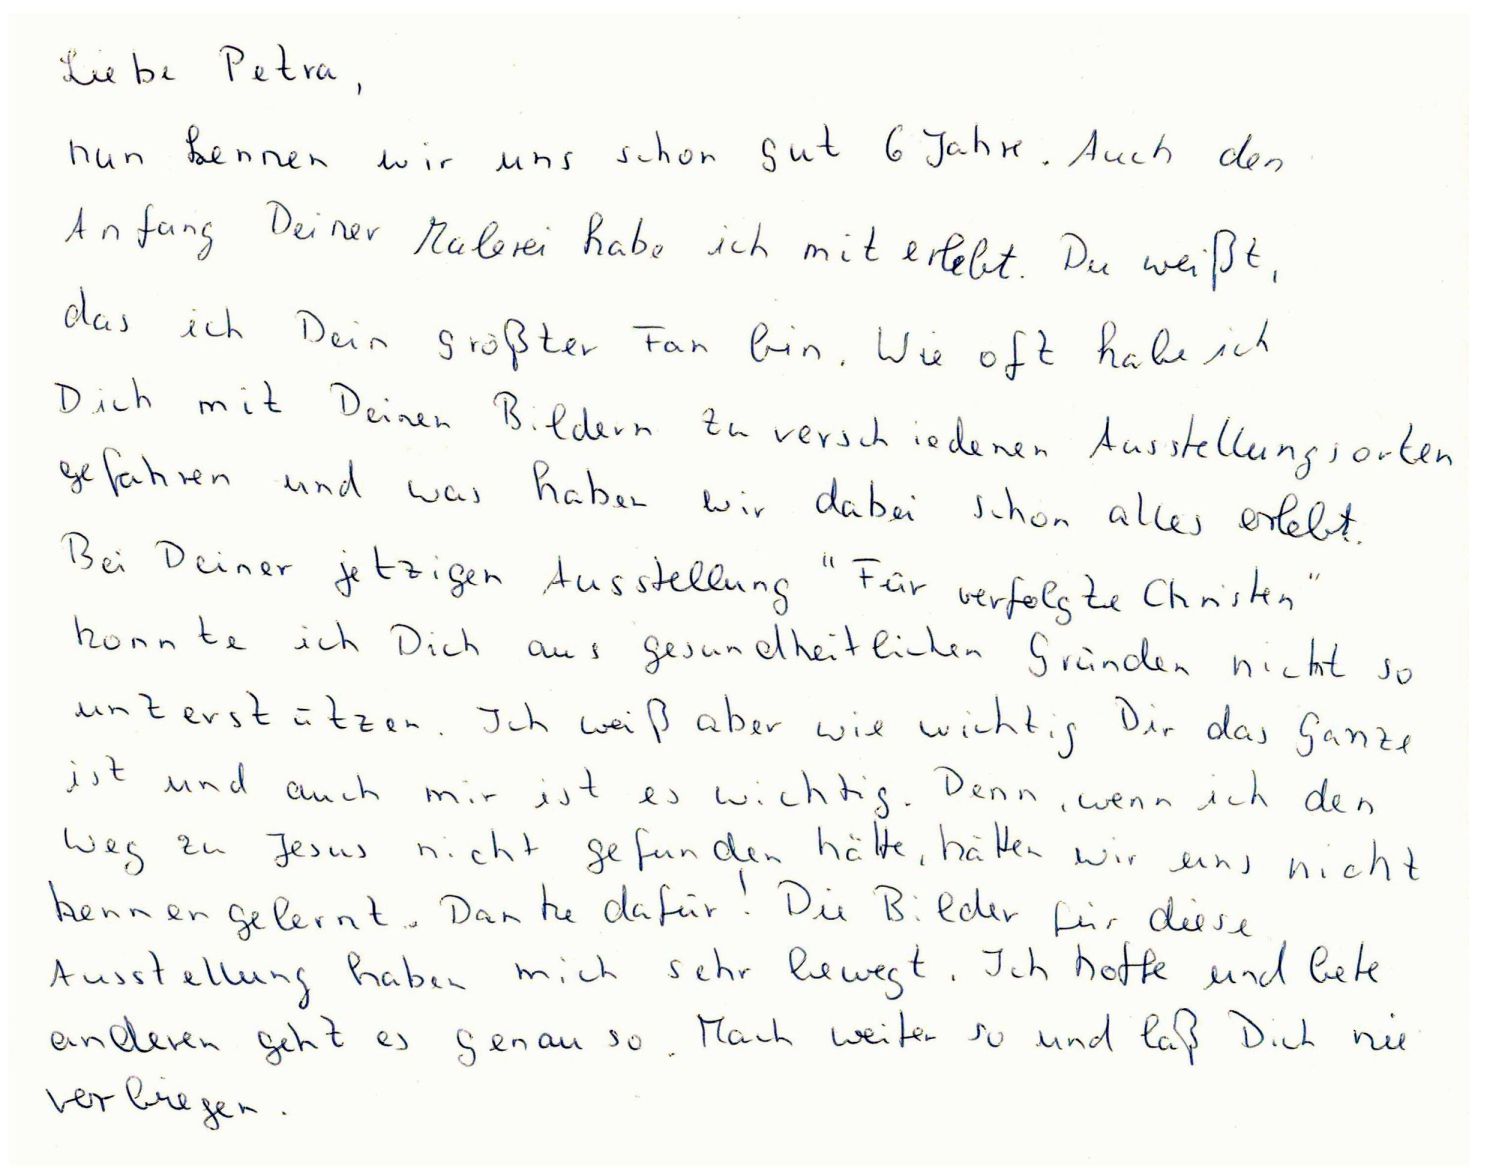 Liebe Petra,
nun kennen wir uns schon gut 6 Jahre. Auch den
Anfang Deiner Malerei habe ich mit erlebt. Du weißt,
das ich Dein größter Fan bin. Wie oft habe ich
Dich mit Deinen Bildern zu verschiedenen Ausstellungsorten
gefahren und was haben wir dabei schon alles erlebt.
Bei Deiner jetzigen Ausstellung "Für verfolgte Christen"
konnte ich Dich aus gesundheitlichen Gründen nicht so
unterstützen. Ich weiß aber wie wichtig Dir das Ganze
ist und auch mir ist es wichtig. Denn, wenn ich den
Weg zu Jesus nicht gefunden hätte, hätten wir uns nicht
kennengelernt. Danke dafür! Die Bilder für diese
Ausstellung haben mich sehr bewegt. Ich hoffe und bete
anderen geht es genau so. Mach weiter so und laß Dich nie
verbiegen.